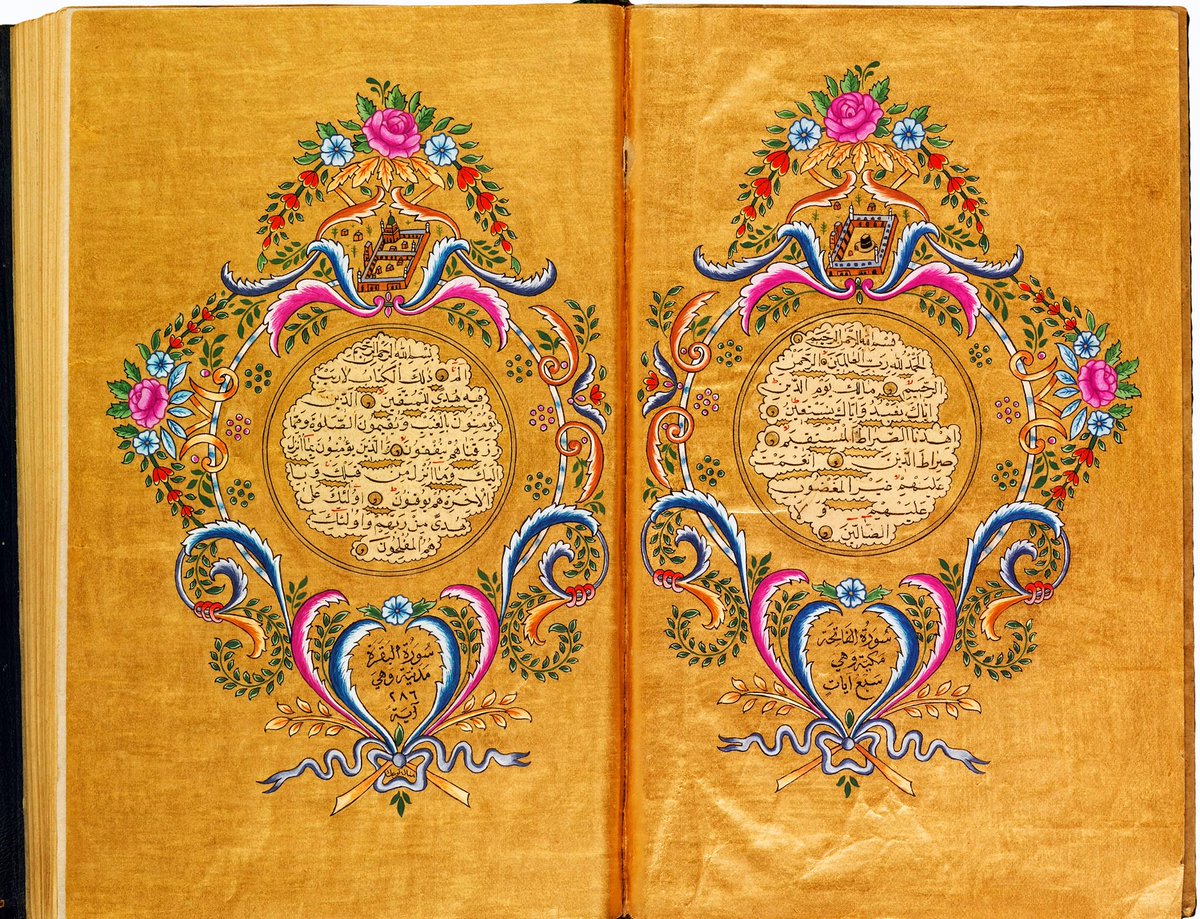 بسم الله الرحمن الرحيم
الحمد لله رب العالمين الرحمن
الرحيم مالك يوم الدين
اياك نعبد واياك نستعين
اهدنا الصراط المستقيم
صراط الذين انعمت
عليهم غير المغضوب
عليهم ولا
الضالين
سورة الفاتحة
مكية وهي
سبع آيات
بسم الله الرحمن الرحيم
الم ذلك الكتاب لا ريب
فيه هدى للمتقين الذين
يؤمنون بالغيب ويقيمون الصلوة ومما
رزقناهم ينفقون والذين يؤمنون بما انزل
اليك وما انزل من قبلك وب
الآخرة هم يوقنون اولئك على
هدى من ربهم واولئك
هم المفلحون
سورة البقرة
مدنية وهي
٢٨٦
آية